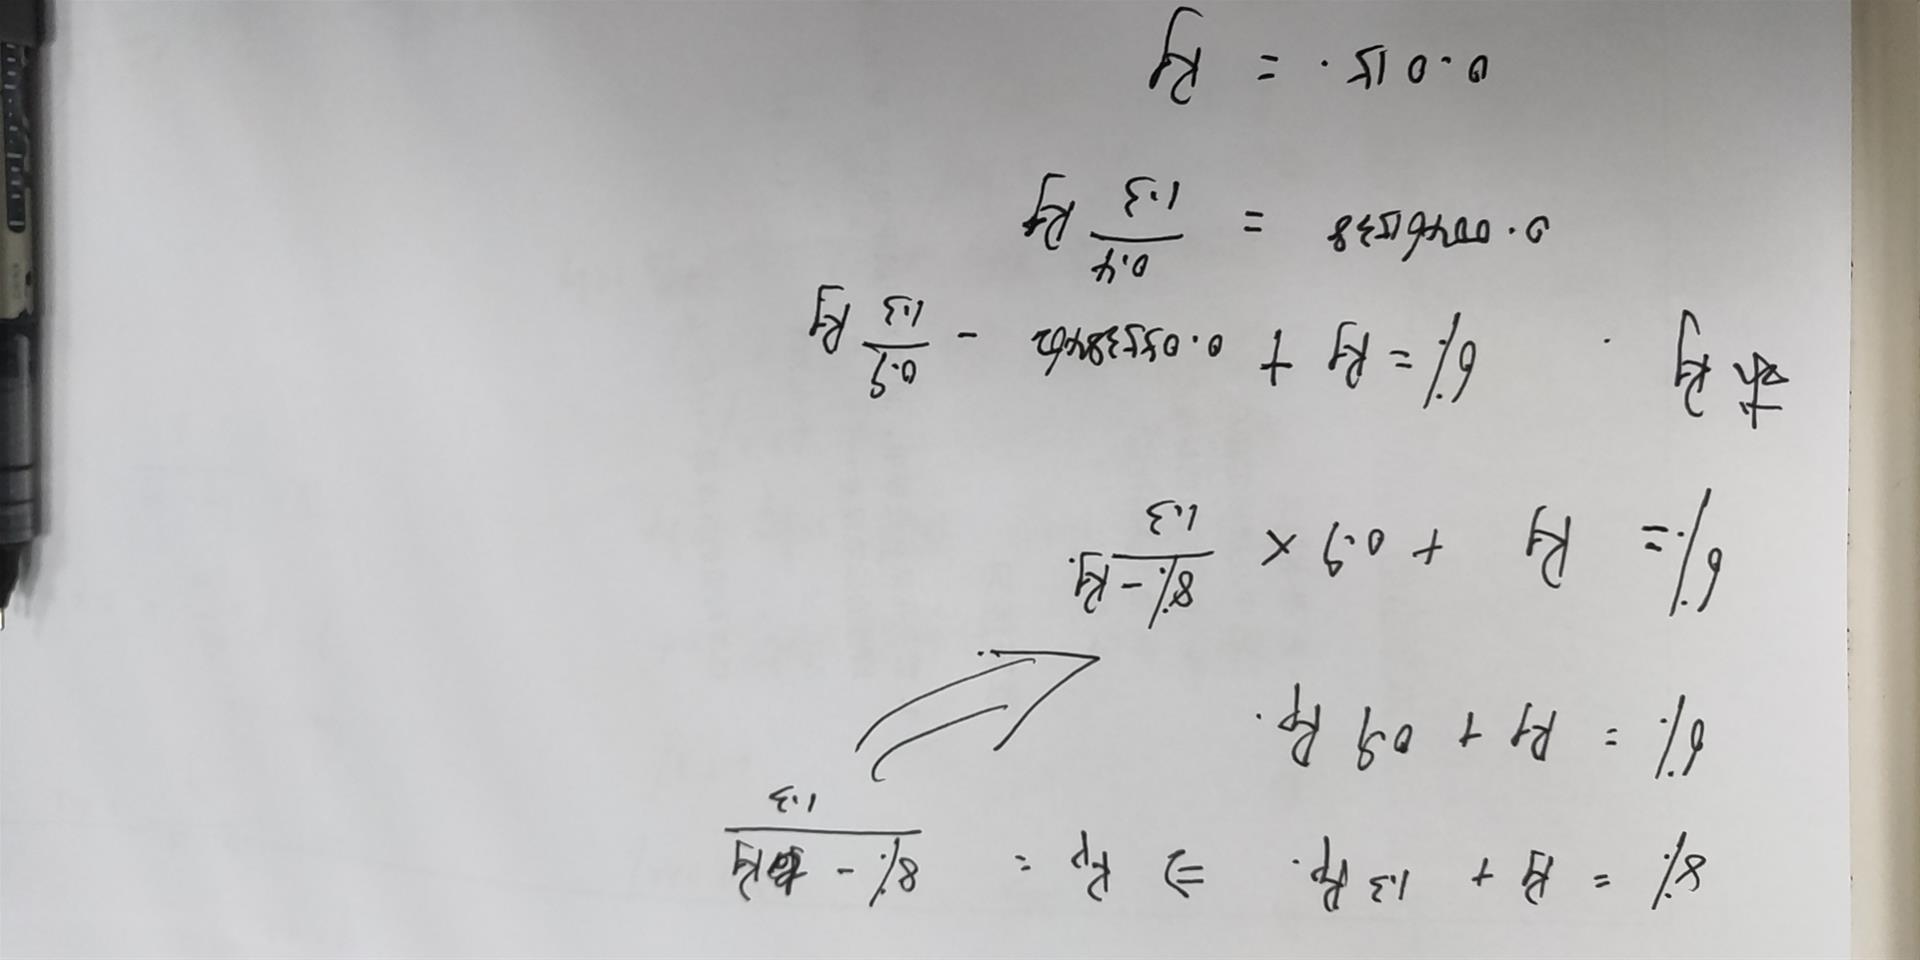 8% = Rf + 1.3 Rp. ⇒ Rp = (8% - Rf) / 1.3
6% = Rf + 0.9 Rp.
6% = Rf + 0.9 × (8% - Rf.) / 1.3
求 Rf. 6% = Rf + 0.05538462 - 0.9/1.3 Rf
0.00461538 = 0.4/1.3 Rf
0.015. = Rf